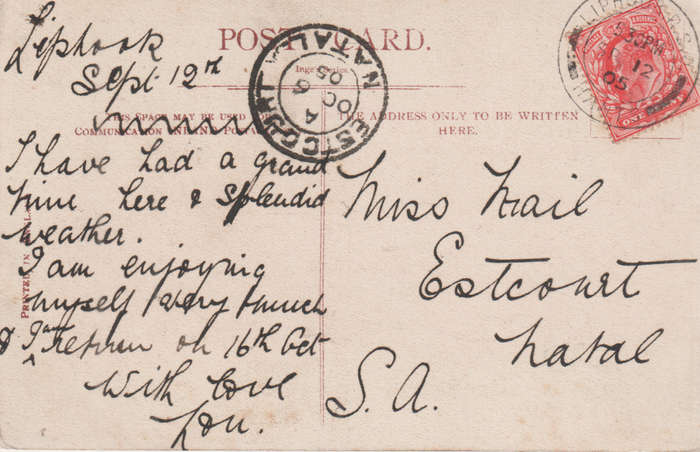 POST CARD.
Liphook
Sept. 12th
THIS SPACE MAY BE USED FOR
COMMUNICATION
THE ADDRESS ONLY TO BE WRITTEN
HERE.
I have had a grand
time here & splendid
weather.
I am enjoying
myself very much
& I return on 16th Oct
With love
Lou.
Miss
Estcourt
Natal
S.A.
PRINTED IN
ESTCOURT NATAL
A
OC 6
05
5 30 PM
12
05
ONE